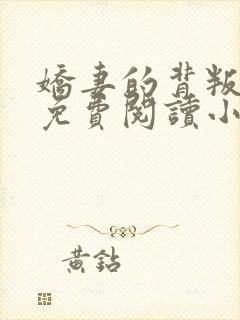 嬌妻的背叛
免費閱讀小
黃鉆